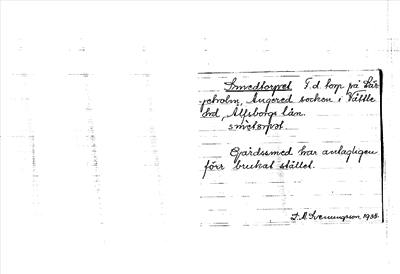 Smedtorpet F.d. torp på Lär-
jeholm, Angered socken i Vättle
hd, Älfsborgs län.
smetorpət
Gårdssmed har antagligen
förr brukat stället.
D. A. Svenungsson 1935.